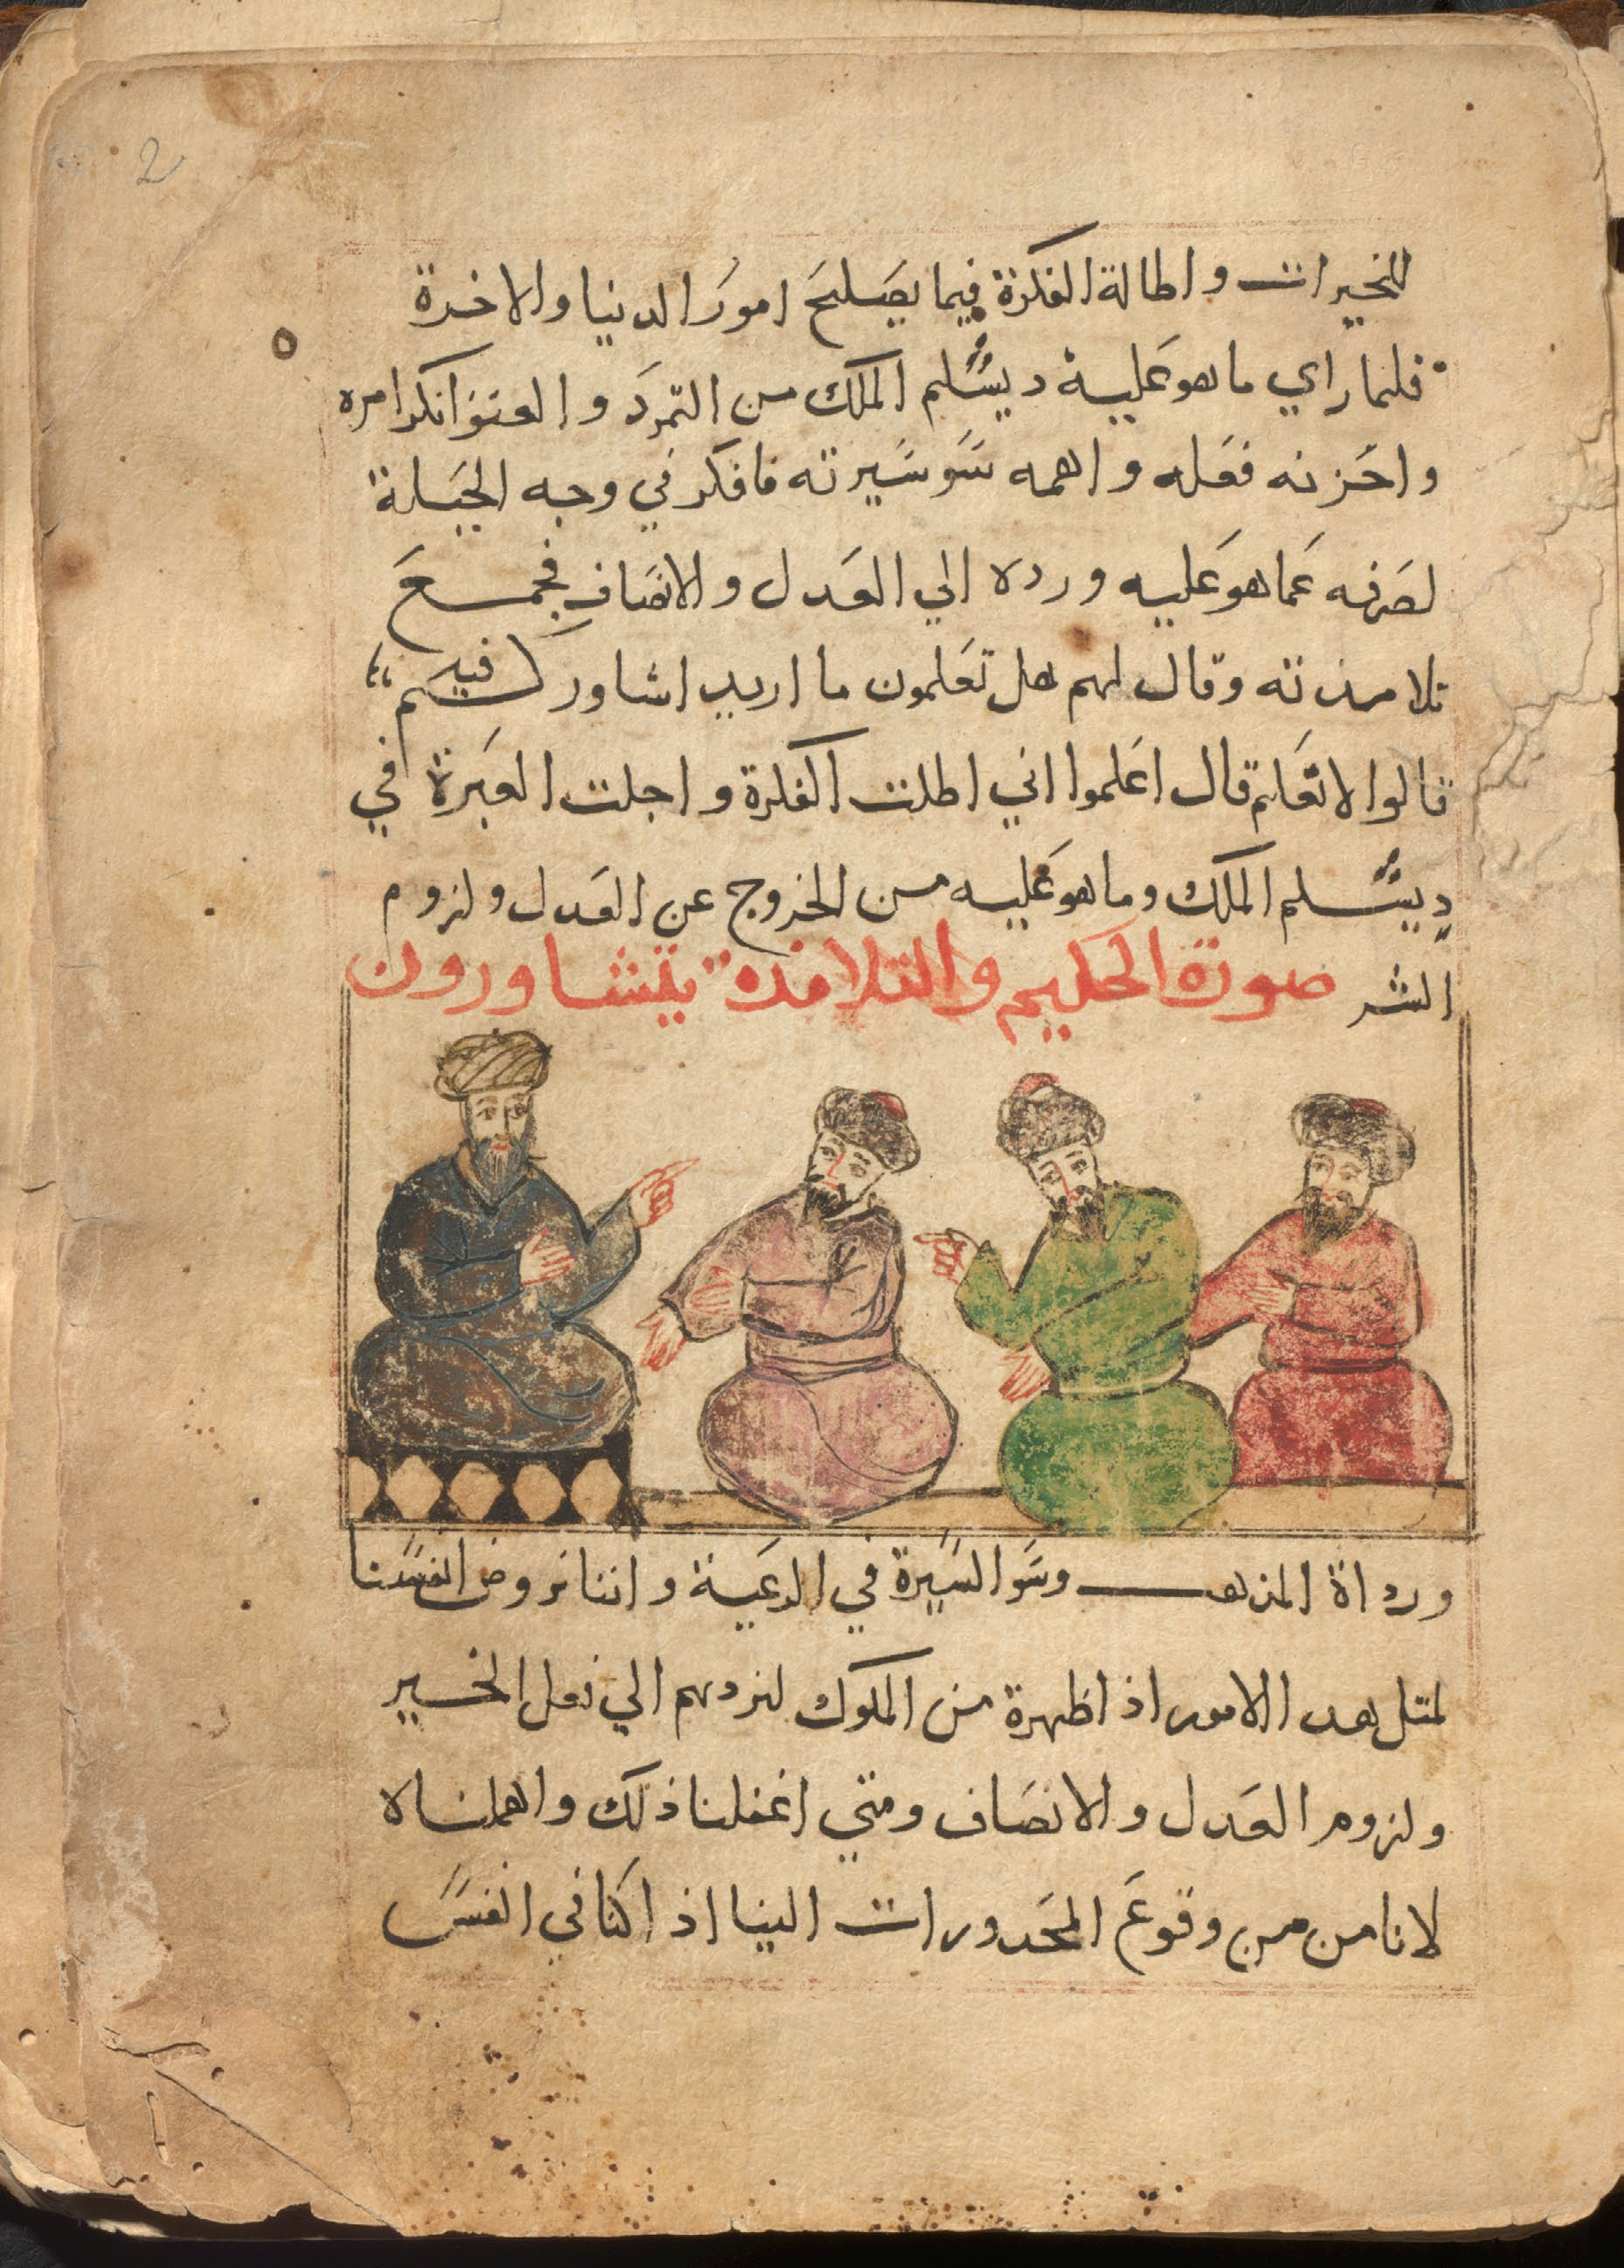 2
للخيرات واطالة الفكرة فيما يصَلحَ امورَ الدنيا والاخرة
فلما راي ما هو عَليه ديسَّلم الملك من التمردَ والعتوَ انكر امره
واحَزنه فعَله واهمه سَو سَيرته فافكر في وجه الحَيلة
لصَرفه عَما هو عَليه ورده الي العَدل والانصَاف فجمع
تلامذته وقال لهم هل تعَلمون ما اريد اشاوركم فيه
قالوا لا نعَلم قال اعَلموا اني اطلت الفكرة واجلت العَبرة في
ديسَّلم الملك وما هو عَليه من الخروج عن العَدل ولزوم
الشر صورة الحكيم والتلامذه يتشاورون
ورداة المذهب وسَو السَيرة في الرعَية واننا نروض انفسَنا
لمتل هدا الامور اذا ظهرة من الملوك لنردهم الي فعل الخير
ولزوم العَدل والانصَاف ومتي اغفلنا ذلك واهملناه
لا نامن من وقوعَ المحَدورات الينا اذ اكنا في انفسَ
٥